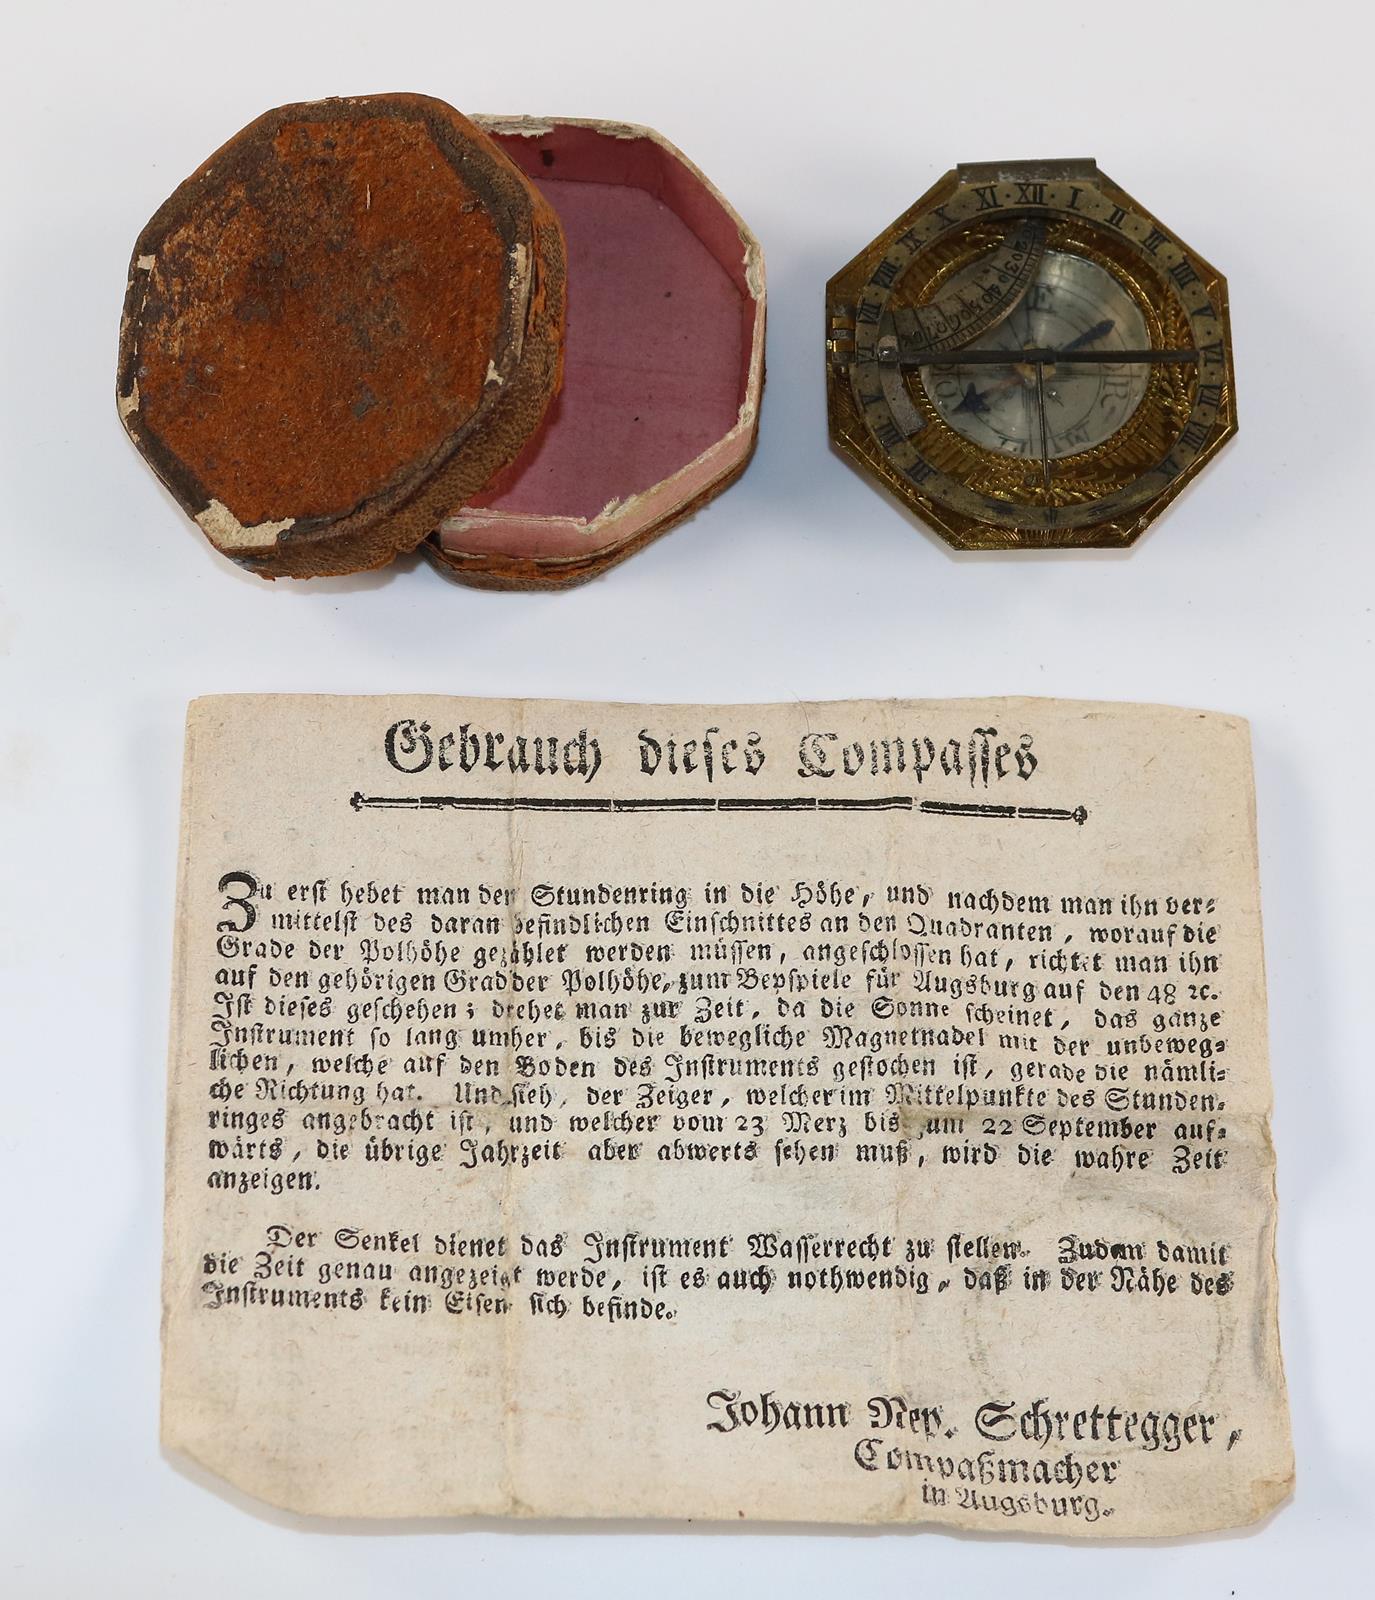 XI · XII · I · II · III · IIII · V · VI · VII · VIII
X · IX · VIII · VII
V · IIII · III
20 30 40 50 60 70
Gebrauch dieses Compasses
Zu erst hebet man den Stundenring in die Höhe, und nachdem man ihn ver-
mittelst des daran befindlichen Einschnittes an den Quadranten, worauf die
Grade der Polhöhe gezählet werden müssen, angeschlossen hat, richtet man ihn
auf den gehörigen Grad der Polhöhe, zum Beyspiele für Augsburg auf den 48 ꝛc.
Ist dieses geschehen; drehet man zur Zeit, da die Sonne scheinet, das ganze
Instrument so lang umher, bis die bewegliche Magnetnadel mit der unbeweg-
lichen, welche auf den Boden des Instruments gestochen ist, gerade die nämli-
che Richtung hat. Und sieh, der Zeiger, welcher im Mittelpunkte des Stunden-
ringes angebracht ist, und welcher vom 23 Merz bis zum 22 September auf-
wärts, die übrige Jahrzeit aber abwerts sehen muß, wird die wahre Zeit
anzeigen.
Der Senkel dienet das Instrument Wasserrecht zu stellen. Zudem damit
die Zeit genau angezeigt werde, ist es auch nothwendig, daß in der Nähe des
Instruments kein Eisen sich befinde.
Johann Nep. Schrettegger,
Compaßmacher
in Augsburg.